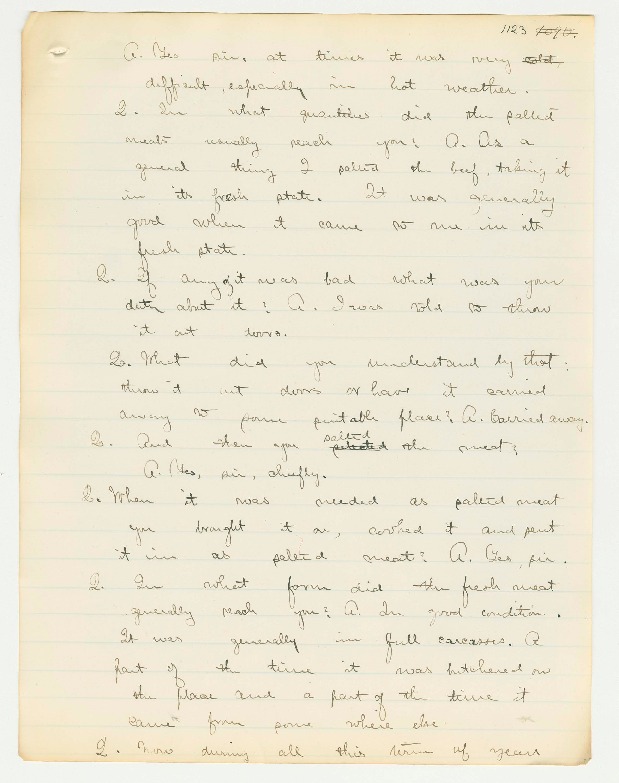 1123 1090.
A. Yes sir, at times it was very cold,
difficult, especially in hot weather.
Q. In what quantities did the salted
meats usually reach you? A. As a
general thing I salted the beef, taking it
in its fresh state. It was generally
good when it came to me in its
fresh state.
Q. If any of it was bad what was your
duty about it? A. I was told to throw
it out doors.
Q. What did you understand by that:
throw it out doors or have it carried
away to some suitable place? A. Carried away.
salted
Q. And then you selected the meat?
A. Yes, sir, chiefly.
Q. When it was needed as salted meat
you brought it on, cooked it and sent
it in as salted meat? A. Yes, sir.
Q. In what form did the fresh meat
generally reach you? A. In good condition.
It was generally in full carcasses. A
part of the time it was butchered on
the place and a part of the time it
came from some where else
Q. Now during all this term of years